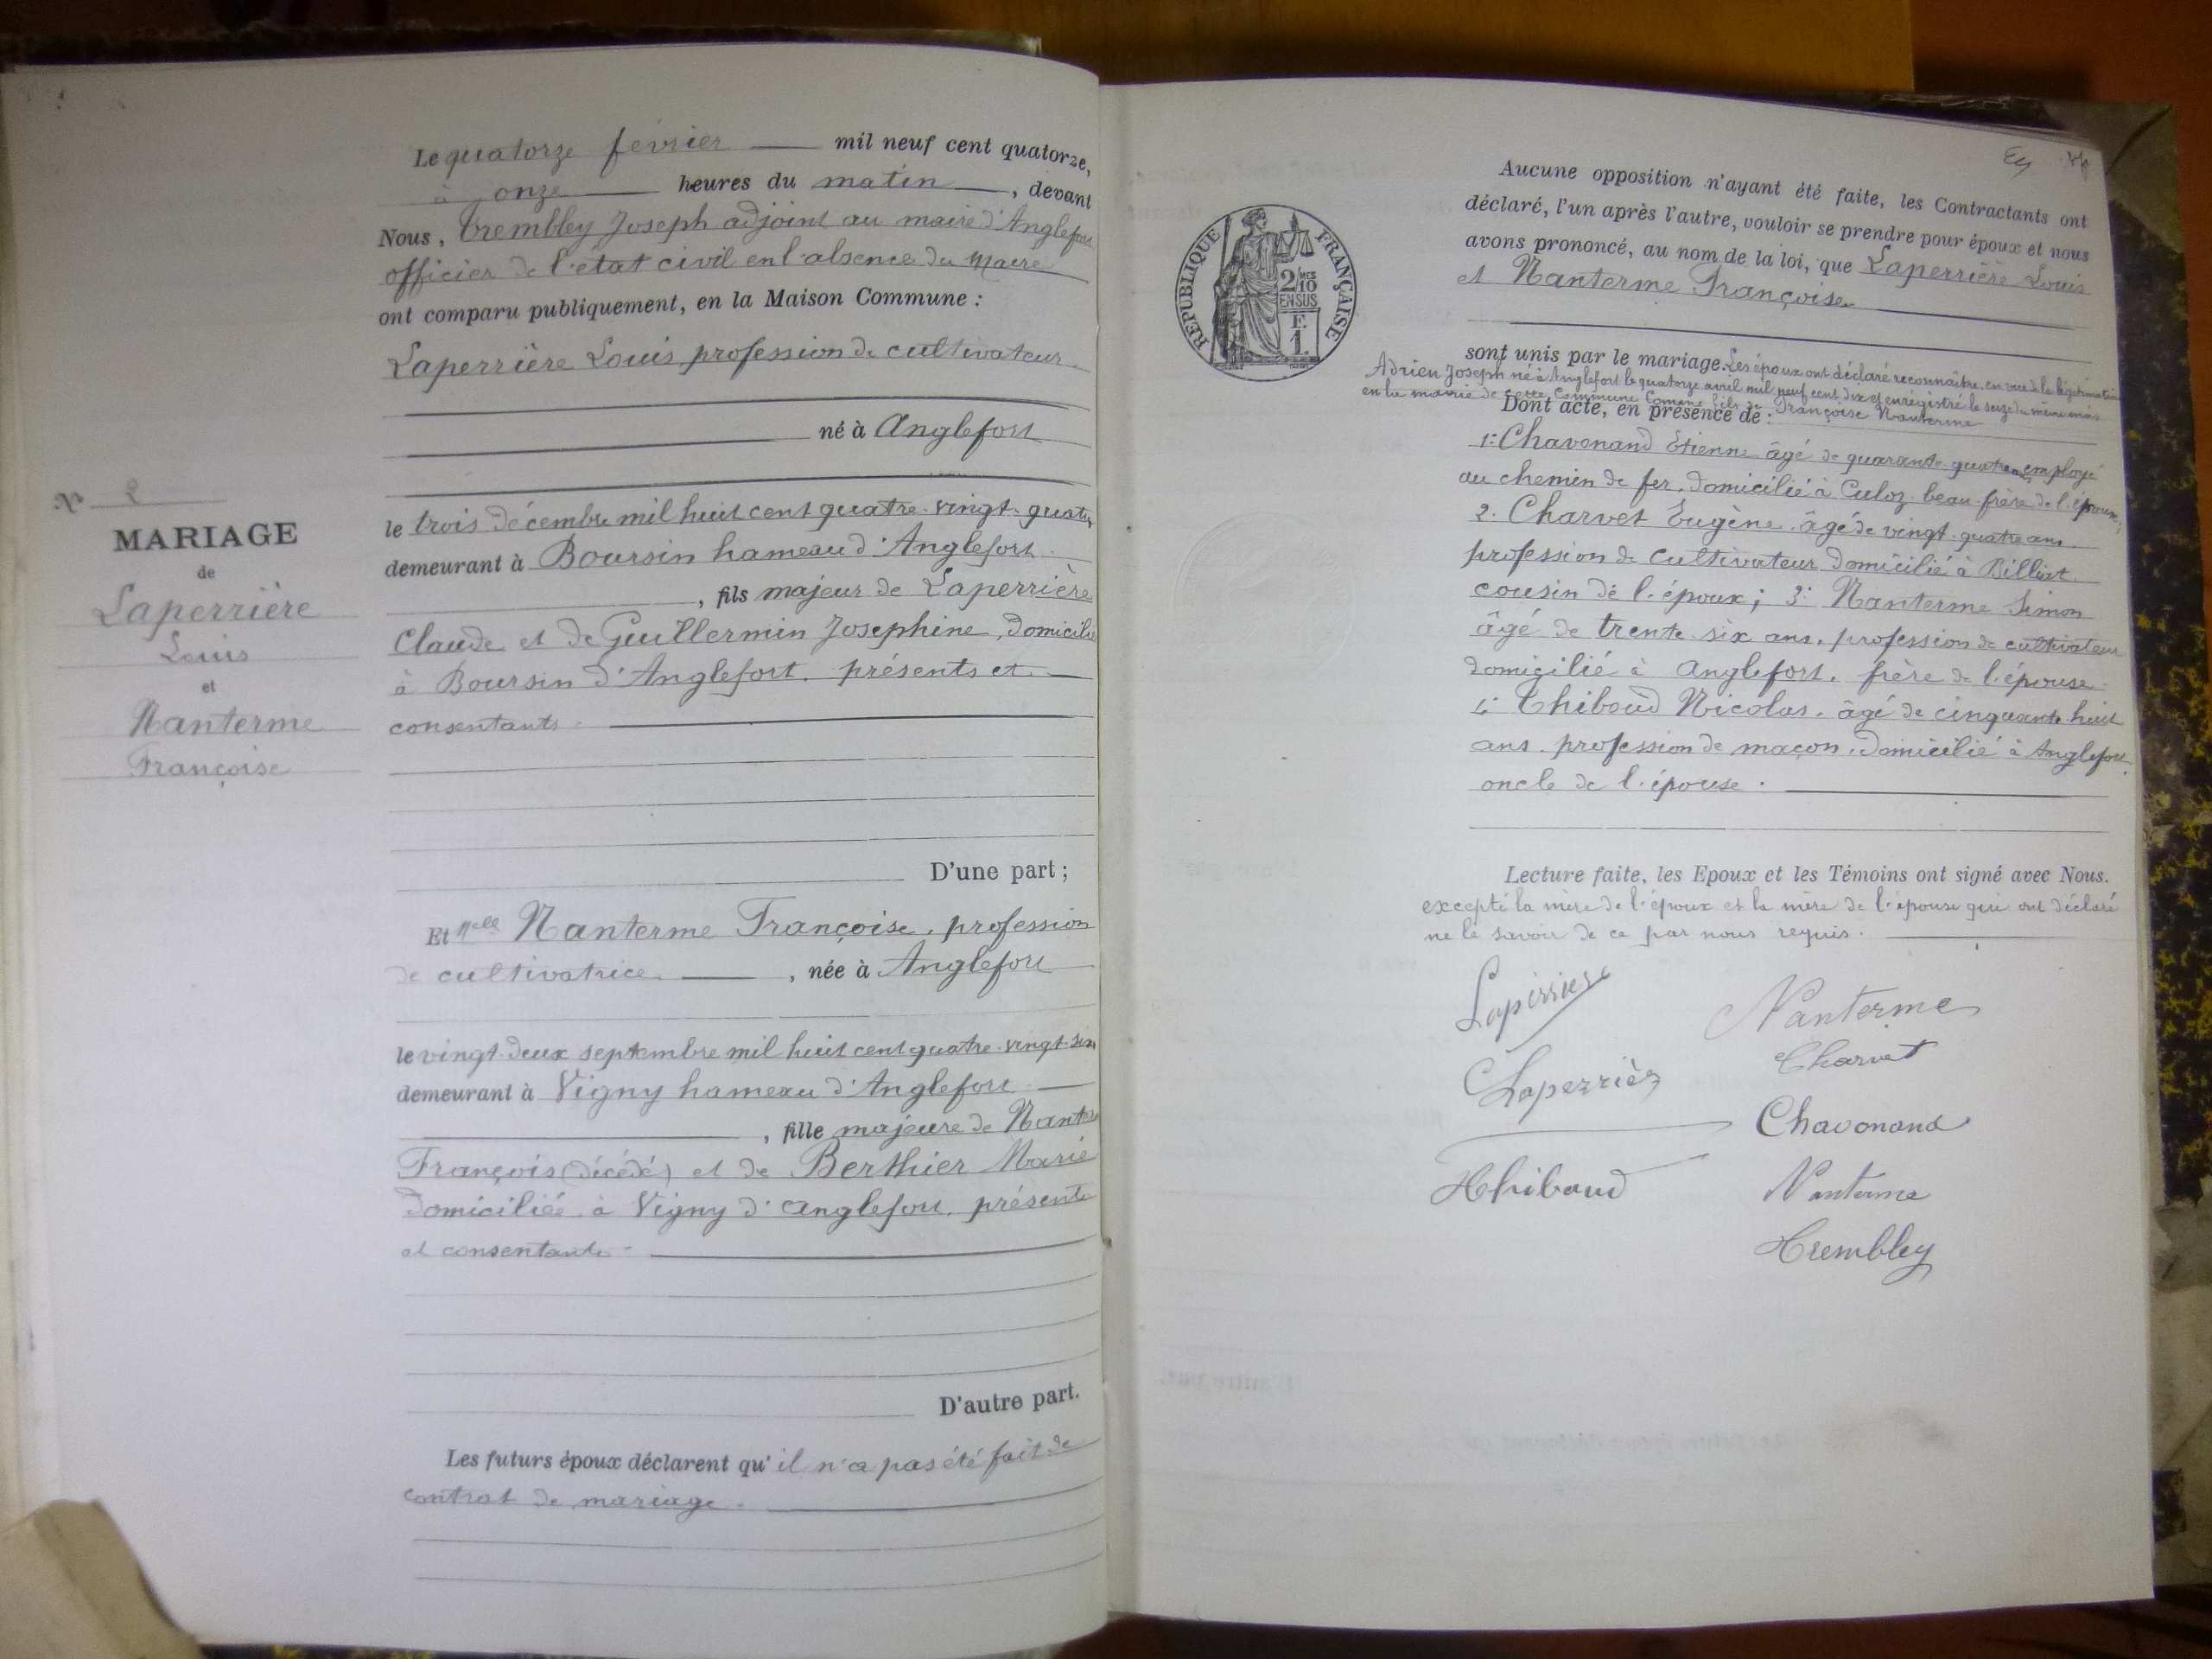 Le quatorze février mil neuf cent quatorze,
à onze heures du matin, devant
Nous, Trembley Joseph adjoint au maire d'Anglefort
officier de l'état civil en l'absence du Maire
ont comparu publiquement, en la Maison Commune :
Laperrière Louis, profession de cultivateur
né à Anglefort
le trois décembre mil huit cent quatre-vingt-quatre
demeurant à Boursin hameau d'Anglefort
, fils majeur de Laperrière
Claude et de Guillermin Josephine, domiciliés
à Boursin d'Anglefort. présents et
consentants.
D'une part ;
Et Melle Nanterme Françoise, profession
de cultivatrice, née à Anglefort
le vingt-deux septembre mil huit cent quatre-vingt-six
demeurant à Vigny hameau d'Anglefort
, fille majeure de Nanterme
François (décédé) et de Berthier Marie
domiciliée à Vigny d'Anglefort, présente
et consentante.
D'autre part.
Les futurs époux déclarent qu'il n'a pas été fait de
contrat de mariage.
N° 2
MARIAGE
de
Laperrière
Louis
et
Nanterme
Françoise
RÉPUBLIQUE FRANÇAISE
2/10 MES
EN SUS
F.
1.
Aucune opposition n'ayant été faite, les Contractants ont
déclaré, l'un après l'autre, vouloir se prendre pour époux et nous
avons prononcé, au nom de la loi, que Laperrière Louis
et Nanterme Françoise
sont unis par le mariage. Les époux ont déclaré reconnaître, en vue de la légitimation
Adrien Joseph né à Anglefort le quatorze avril mil neuf cent dix et enregistré le seize du même mois
en la mairie de cette Commune Comme fils de Françoise Nanterme
Dont acte, en présence de :
1° Chavonand Etienne âgé de quarante-quatre ans, employé
au chemin de fer, domicilié à Culoz. beau-frère de l'époux;
2. Charvet Eugène. âgé de vingt-quatre ans.
profession de cultivateur domicilié à Billiat.
cousin de l'époux; 3° Nanterme Simon
âgé de trente-six ans, profession de cultivateur
domicilié à Anglefort. frère de l'épouse
4° Thiboud Nicolas. âgé de cinquante-huit
ans. profession de maçon, domicilié à Anglefort,
oncle de l'épouse.
Lecture faite, les Epoux et les Témoins ont signé avec Nous.
excepté la mère de l'époux et la mère de l'épouse qui ont déclaré
ne le savoir de ce par nous requis.
Laperriere Nanterme
Laperrière Charvet
Chavonand
Thiboud Nanterme
Trembley